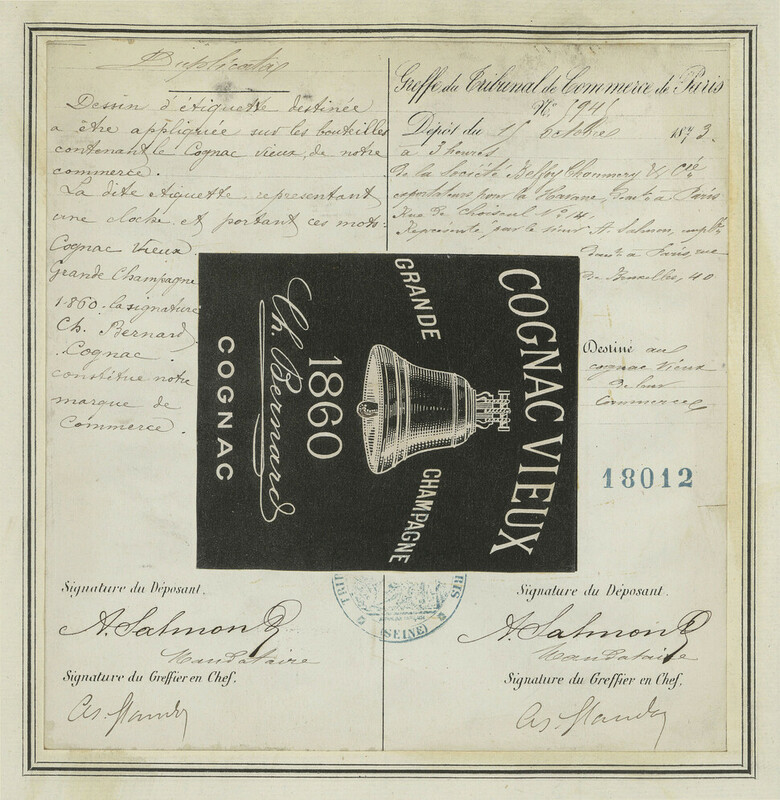 Duplicata
Dessin d'étiquette destinée
a être appliquée sur les bouteilles
contenant le Cognac vieux, de notre
commerce.
La dite étiquette représentant
une cloche et portant ces mots:
Cognac Vieux
Grande Champagne
1860. la signature
Ch. Bernard
Cognac
constitue notre
marque de
Commerce.
Greffe du Tribunal de Commerce de Paris
Nº
Dépôt du Octobre 1873.
à 3 heures
de la Société & Cie
exportateurs pour la Havane, à Paris
Rue de Choiseul Nº 4.
Représentée par le sieur A. Salmon,
à Paris, rue
de Bruxelles, 40
Destiné au
cognac vieux
de leur
Commerce
18012
COGNAC VIEUX
GRANDE CHAMPAGNE
1860
Ch. Bernard
COGNAC
Signature du Déposant.
A. Salmon
Mandataire
Signature du Greffier en Chef.
(SEINE)
Signature du Déposant.
A. Salmon
Mandataire
Signature du Greffier en Chef.